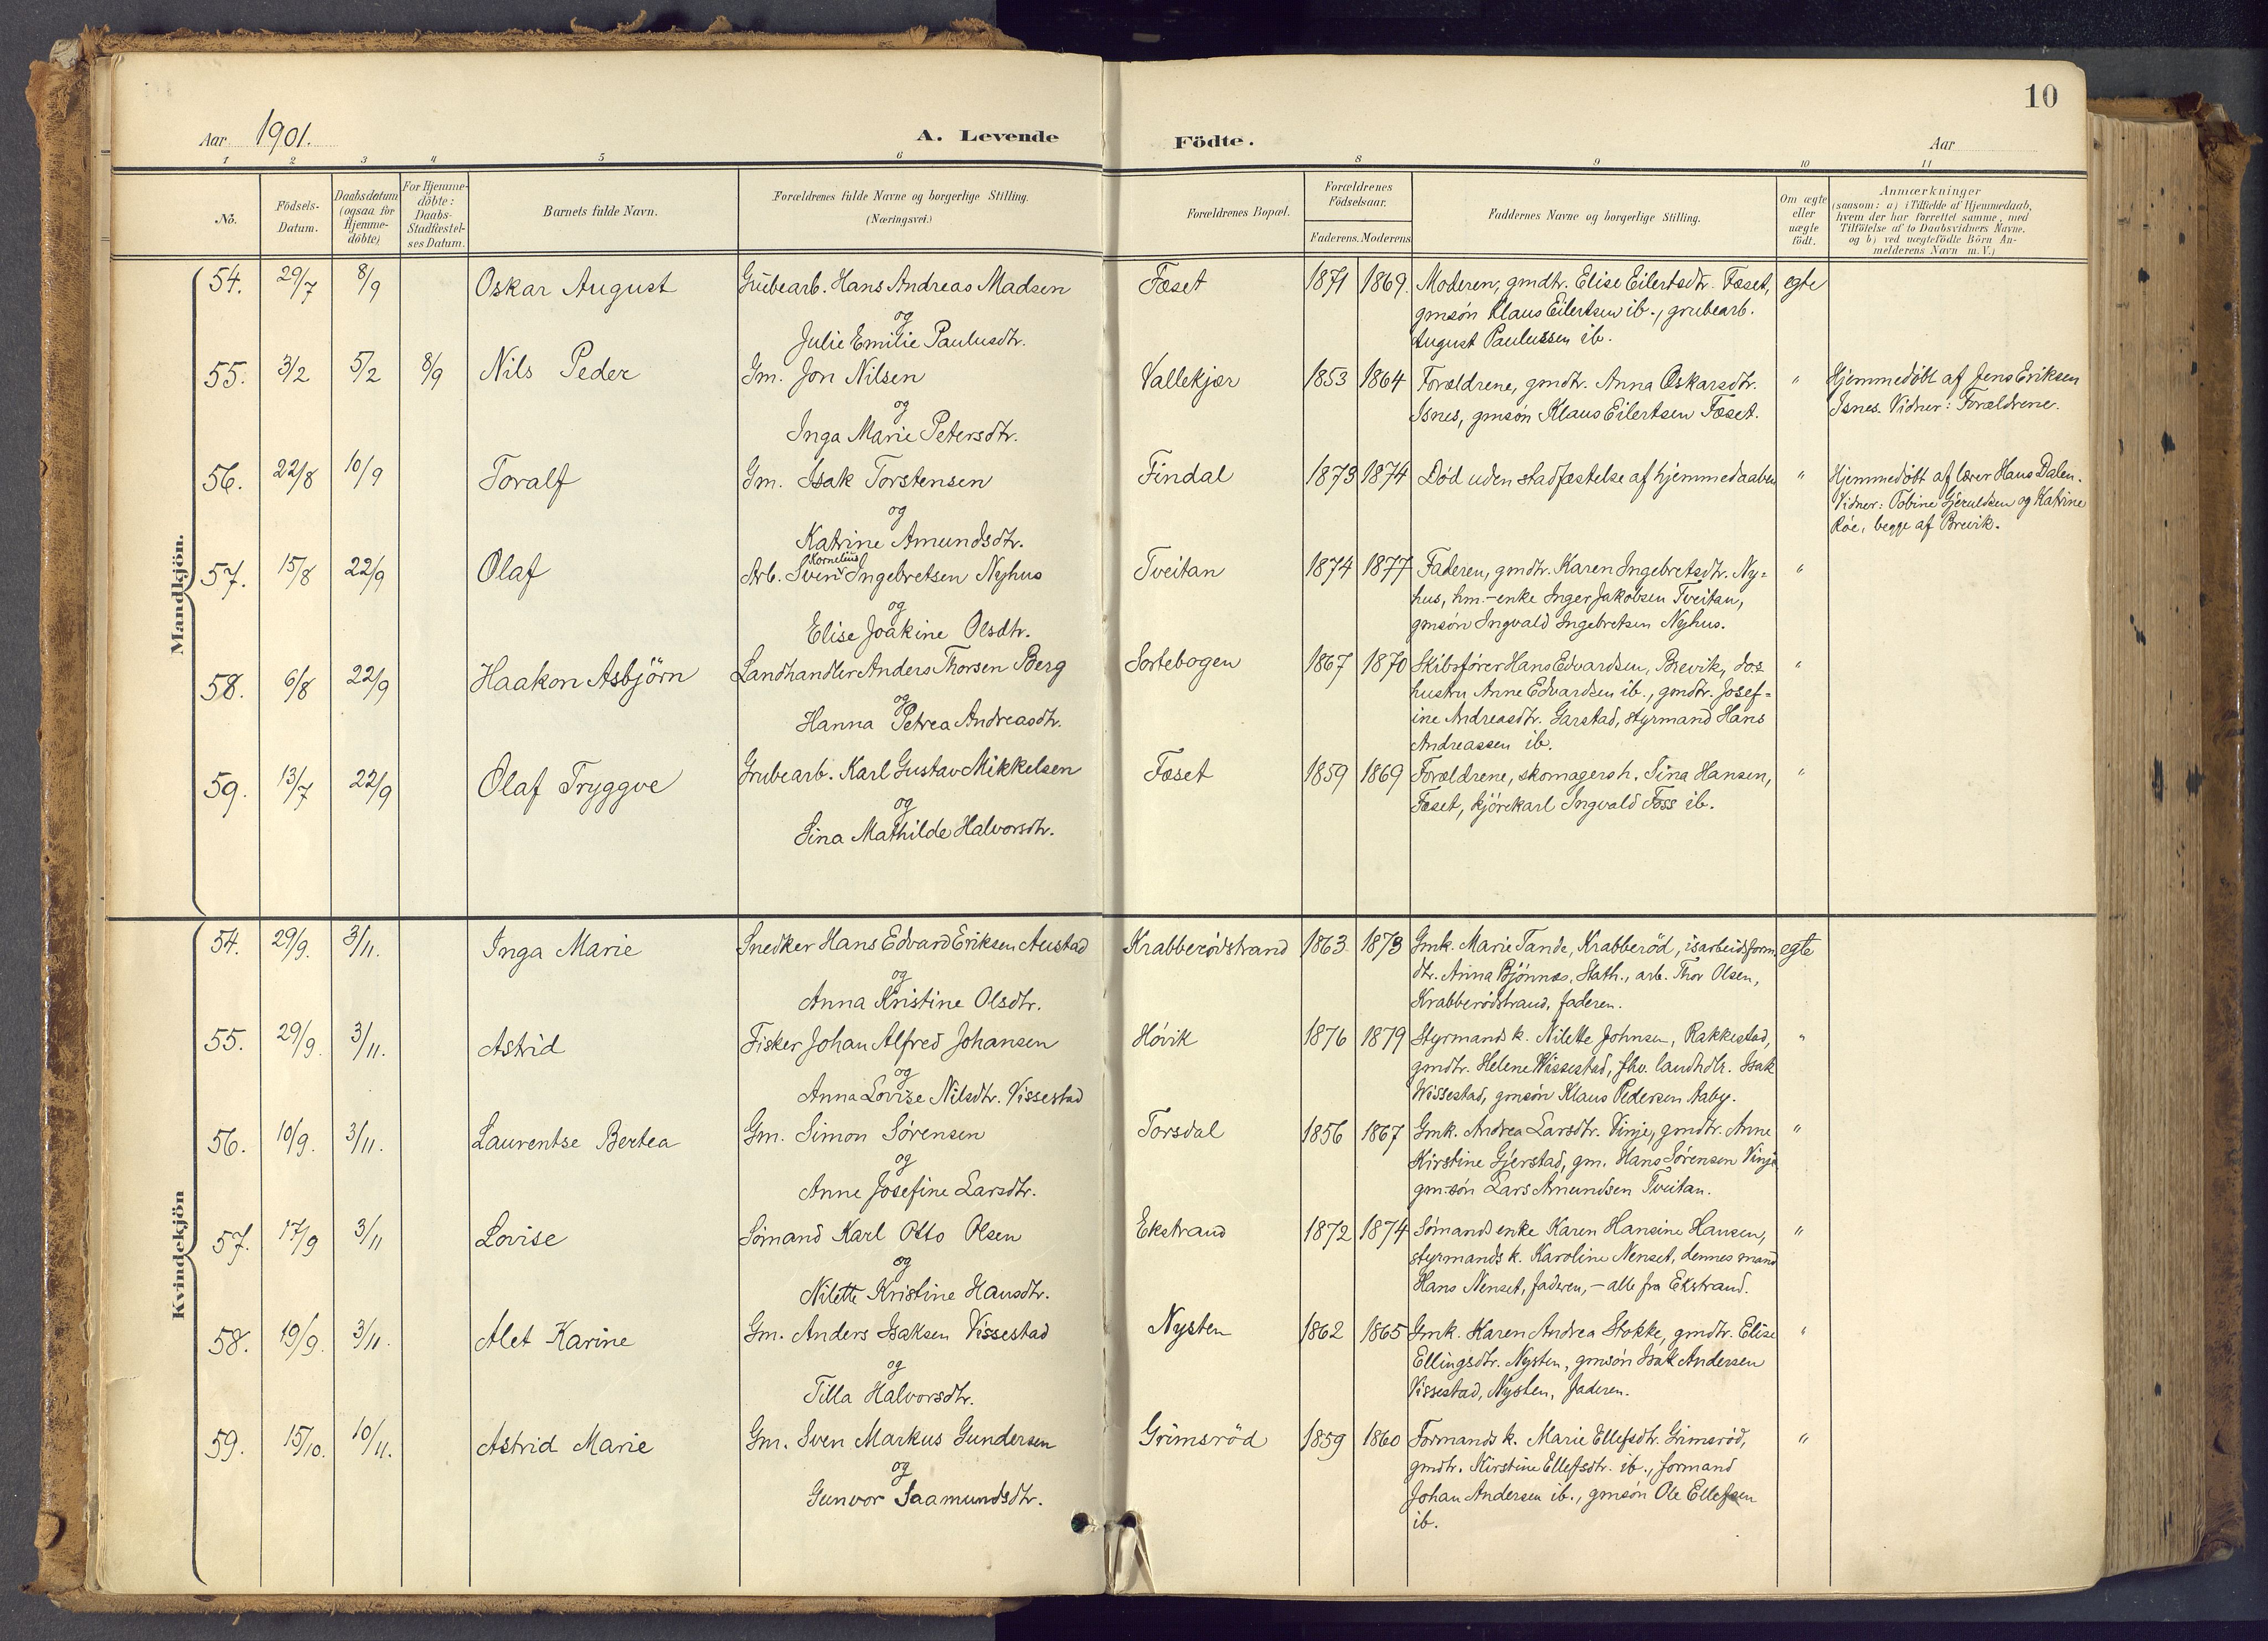 10
Aar 1901.
A. Levende Födte.
Aar
1 2 3 4 5 6 8 9 10 11
No.
Födsels-
Datum.
Daabsdatum
(ogsaa for
Hjemme-
döbte)
For Hjemme-
döbte:
Daabs-
Stadfæstel-
ses Datum.
Barnets fulde Navn.
Forældrenes fulde Navne og borgerlige Stilling.
(Næringsvei.)
Forældrenes Bopæl.
Forældrenes
Födselsaar.
Faderens. Moderens
Faddernes Navne og borgerlige Stilling.
Om ægte
eller
uægte
födt.
Anmærkninger
(saasom: a) i Tilfælde af Hjemmedaab,
hvem der har forrettet samme, med
Tilföielse af to Daabsvidners Navne,
og b) ved uægtefödte Börn An-
melderens Navn m. V.)
Mandkjön.
54. 29/7 8/9 Oskar August
Grubearb. Hans Andreas Madsen
og
Julie Emilie Paulusdtr.
Fæset 1871 1869.
Moderen, gmdtr. Elise Eilertsdtr. Fæset,
gmsön Klaus Eilertsen ib., grubearb.
August Paulussen ib.
egte
55. 3/2 5/2 8/9 Nils Peder
Gm. Jon Nilsen
og
Inga Marie Petersdtr.
Vallekjær 1853 1864
Forældrene, gmdtr. Anna Oskarsdtr.
Isnes, gmsön Klaus Eilertsen Fæset.
"
Hjemmedöbt af Jens Eriksen
Isnes. Vidner: Forældrene.
56. 22/8 10/9 Toralf
Gm. Isak Torstensen
og
Katrine Amundsdtr.
Findal 1873 1874
Död uden stadfæstelse af hjemmedaaben
"
Hjemmedöbt af lærer Hans Dalen.
Vidner: Tobine Gjeruldsen og Katrine
Röe, begge af Brevik.
57. 15/8 22/9 Olaf
Kornelius
Arb. Sven Ingebretsen Nyhus
og
Elise Joakine Olsdtr.
Tveitan 1874 1877
Faderen, gmdtr. Karen Ingebretsdtr. Ny=
hus, hm.-enke Inger Jakobsen Tveitan,
gmsön Ingvald Ingebretsen Nyhus.
"
58. 6/8 22/9 Haakon Asbjörn
Landhandler Anders Thorsen Berg
og
Hanna Petrea Andreasdtr.
Sortebogen 1867 1870
Skibsförer Hans Edvardsen, Brevik, dos
hustru Anne Edvardsen ib., gmdtr. Josef=
ine Andreasdtr. Garstad, styrmand Hans
Andreassen ib.
"
59. 13/7 22/9 Olaf Tryggve
Grubearb. Karl Gustav Mikkelsen
og
Sina Mathilde Halvorsdtr.
Fæset 1859 1869
Forældrene, skomagersh. Sina Hansen,
Fæset, kjörekarl Ingvald Foss ib.
"
Kvindekjön
54. 29/9. 3/11. Inga Marie
Snedker Hans Edvard Eriksen Austad
og
Anna Kristine Olsdtr.
Krabberödstrand 1863 1873
Gmk. Marie Tande, Krabberöd, isarbeidsform.
dtr. Anna Björnnæs, Stath., arb. Thor Olsen,
Krabberödstrand, faderen.
egte
55. 29/9. 3/11. Astrid
Fisker Johan Alfred Johansen
og
Anna Lovise Nilsdtr. Vissestad
Hövik 1876 1879
Styrmands k. Nilette Johnsen, Rakkestad,
gmdtr. Helene Wissestad, fhv. landhdlr. Isak
Wissestad, gmsön Klaus Pedersen Aaby.
"
56. 10/9. 3/11. Laurentse Bertea
Gm. Simon Sörensen
og
Anne Josefine Larsdtr.
Torsdal 1856 1867
Gmk. Andrea Larsdtr. Vinje, gmdtr. Anne
Kirstine Gjerstad, gm. Hans Sörensen Vinje
gm-sön Lars Amundsen Tveitan.
"
57. 17/9 3/11 Lovise
Sömand Karl Otto Olsen
og
Nilette Kristine Hansdtr.
Ekstrand 1872 1874
Sömands enke Karen Hansine Hansen,
styrmands k. Karoline Nenset, dennes mand
Hans Nenset, faderen, - alle fra Ekstrand.
"
58. 19/9. 3/11. Alet Karine
Gm. Anders Isaksen Vissestad
og
Tilla Halvorsdtr.
Nysten 1862 1865
Gmk. Karen Andrea Stokke, gmdtr. Elise
Ellingsdtr. Nysten, gmsön Isak Andersen
Vissestad, Nysten, faderen.
"
59. 15/10. 10/11. Astrid Marie
Gm. Sven Markus Gundersen
og
Gunvor Saamundsdtr.
Grimsröd 1859 1860
Formands k. Marie Ellefsdtr. Grimsröd,
gmdtr. Kirstine Ellefsdtr. ib., formand
Johan Andersen ib., gmsön Ole Ellefsen
ib.
"